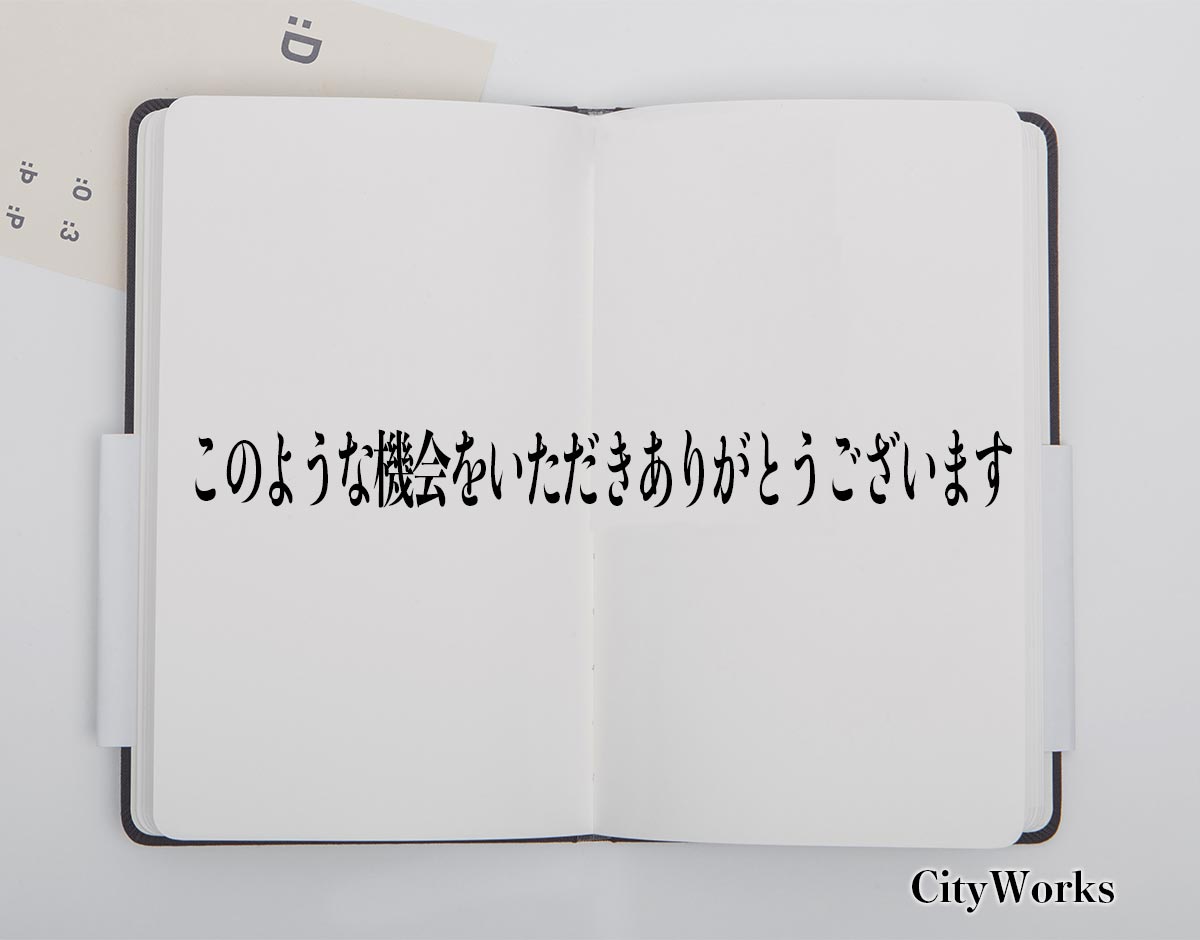 :D
:P
:O
:P
:3
このような機会をいただきありがとうございます
CityWorks